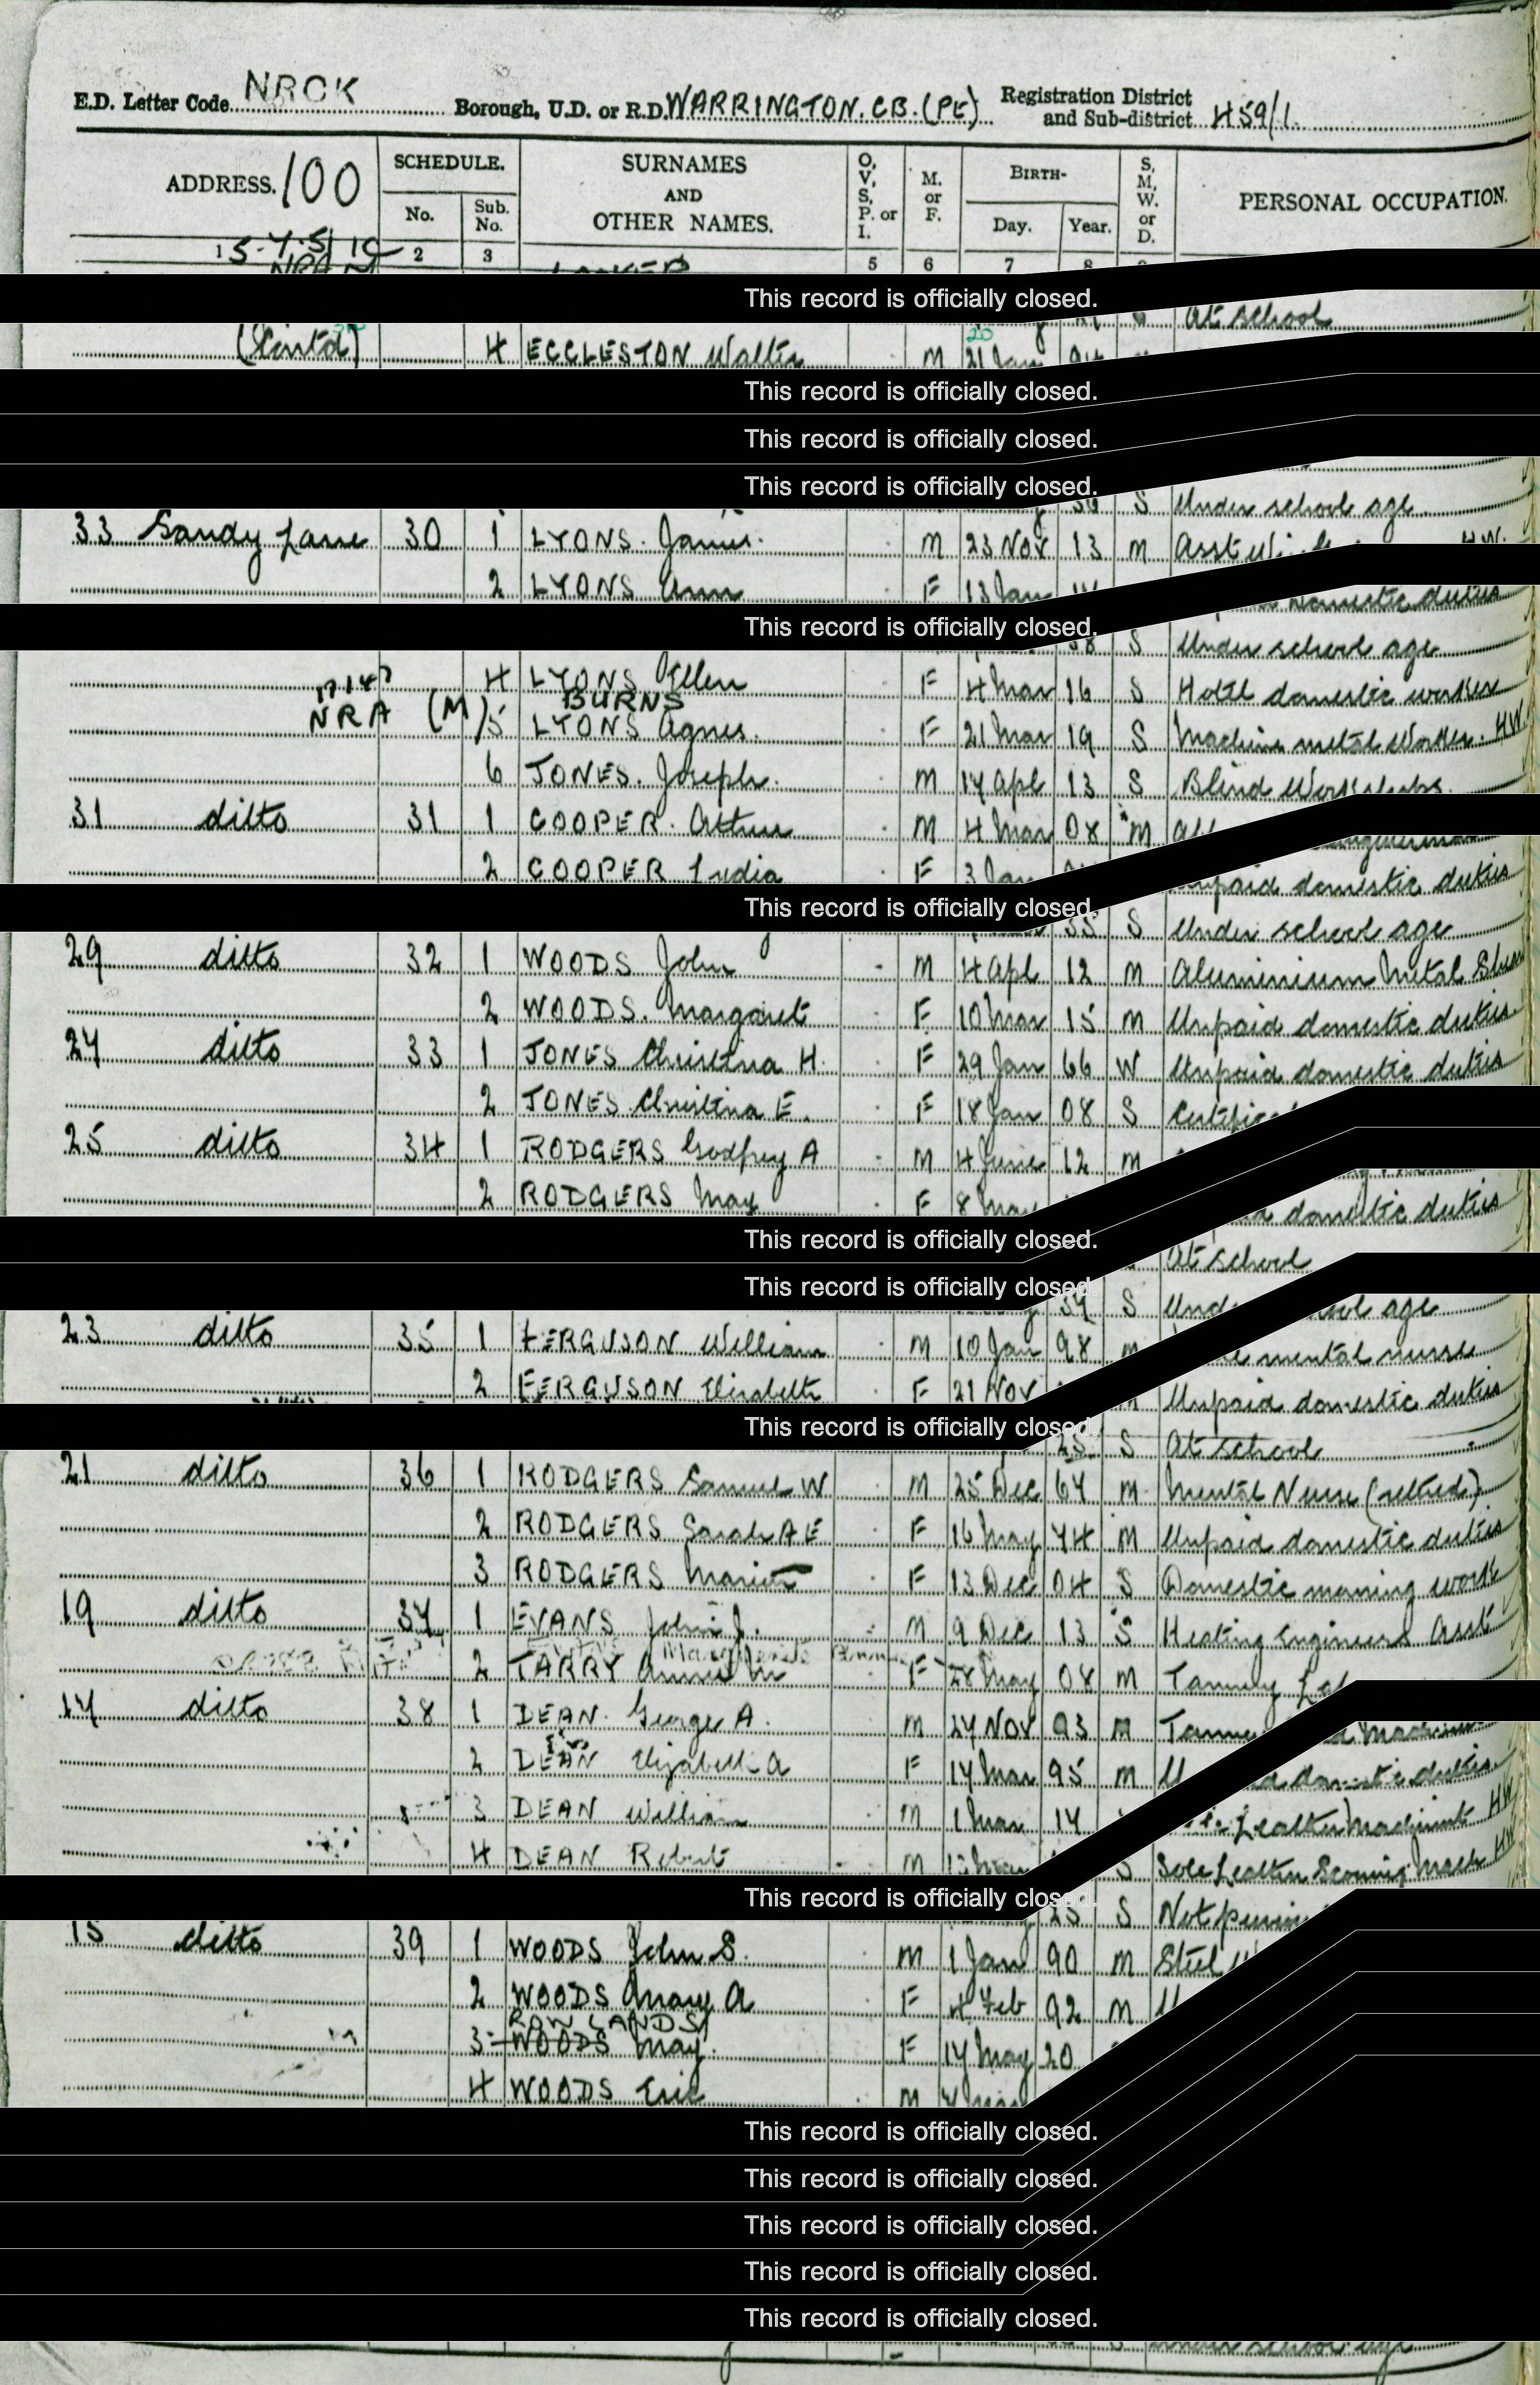 E.D. Letter Code NRCK Borough, U.D. or R.D. WARRINGTON. C.B. (PE) Registration District and Sub-district 459/1.
ADDRESS. 100 SCHEDULE. No. Sub. No. SURNAMES AND OTHER NAMES. O, V, S, P. or I. M. or F. BIRTH- Day. Year. S, M, W. or D. PERSONAL OCCUPATION.
1 2 3 5 6 7 8
This record is officially closed.
At school
4 ECCLESTON Walter M 21 Jan
This record is officially closed.
This record is officially closed.
This record is officially closed.
S Under school age
33 Sandy Lane 30 1 LYONS. James. M 23 Nov 13 M Asst
2 LYONS Ann F 13 Jan domestic duties
This record is officially closed.
38 S Under school age
4 LYONS Ellen F 4 Mar 16 S Hotel domestic worker
NRA (M) BURNS
5 LYONS Agnes. F 21 Mar 19 S Machine metal Worker. HW
6 JONES. Joseph. M 17 Apl 13 S Blind Workshops.
31 ditto 31 1 COOPER. Arthur M 4 Mar 08 M
2 COOPER Lydia F 3 Jan Unpaid domestic duties
This record is officially closed.
35 S Under school age
29 ditto 32 1 WOODS John M 4 Apl 12 M Aluminium Metal
2 WOODS. Margaret F 10 Mar 15 M Unpaid domestic duties
27 ditto 33 1 JONES Christina H. F 29 Jan 66 W Unpaid domestic duties
2 JONES Christina E. F 18 Jan 08 S
25 ditto 34 1 RODGERS Godfrey A M 4 June 12 M
2 RODGERS May F 8 May domestic duties
This record is officially closed.
At school
This record is officially closed.
39 S school age
23 ditto 35 1 FERGUSON William M 10 Jan 98 M mental nurse
2 FERGUSON Elizabeth F 21 Nov Unpaid domestic duties
This record is officially closed.
25 S At school
21 ditto 36 1 RODGERS Samuel W. M 25 Dec 67 M Mental Nurse (retired)
2 RODGERS Sarah A E F 16 May 74 M Unpaid domestic duties
3 RODGERS Marion F 13 Dec 04 S Domestic morning work
19 ditto 37 1 EVANS John J. M 9 Dec 13 S Heating Engineers Asst
2 TARRY Annie M F 28 May 08 M Tannery
17 ditto 38 1 DEAN. George A. M 27 Nov 93 M
2 DEAN Elizabeth A F 17 Mar 95 M
3 DEAN William M 1 Mar 17 Leather Machinist HW
4 DEAN Robert M S Sole Leather Scouring Mach HW
This record is officially closed.
25 S
15 ditto 39 1 WOODS John S. M 1 Jan 90 M Steel
2 WOODS Mary A F 4 Feb 92 M
ROWLANDS
3 WOODS May. F 17 May 20
4 WOODS Eric M
This record is officially closed.
This record is officially closed.
This record is officially closed.
This record is officially closed.
This record is officially closed.